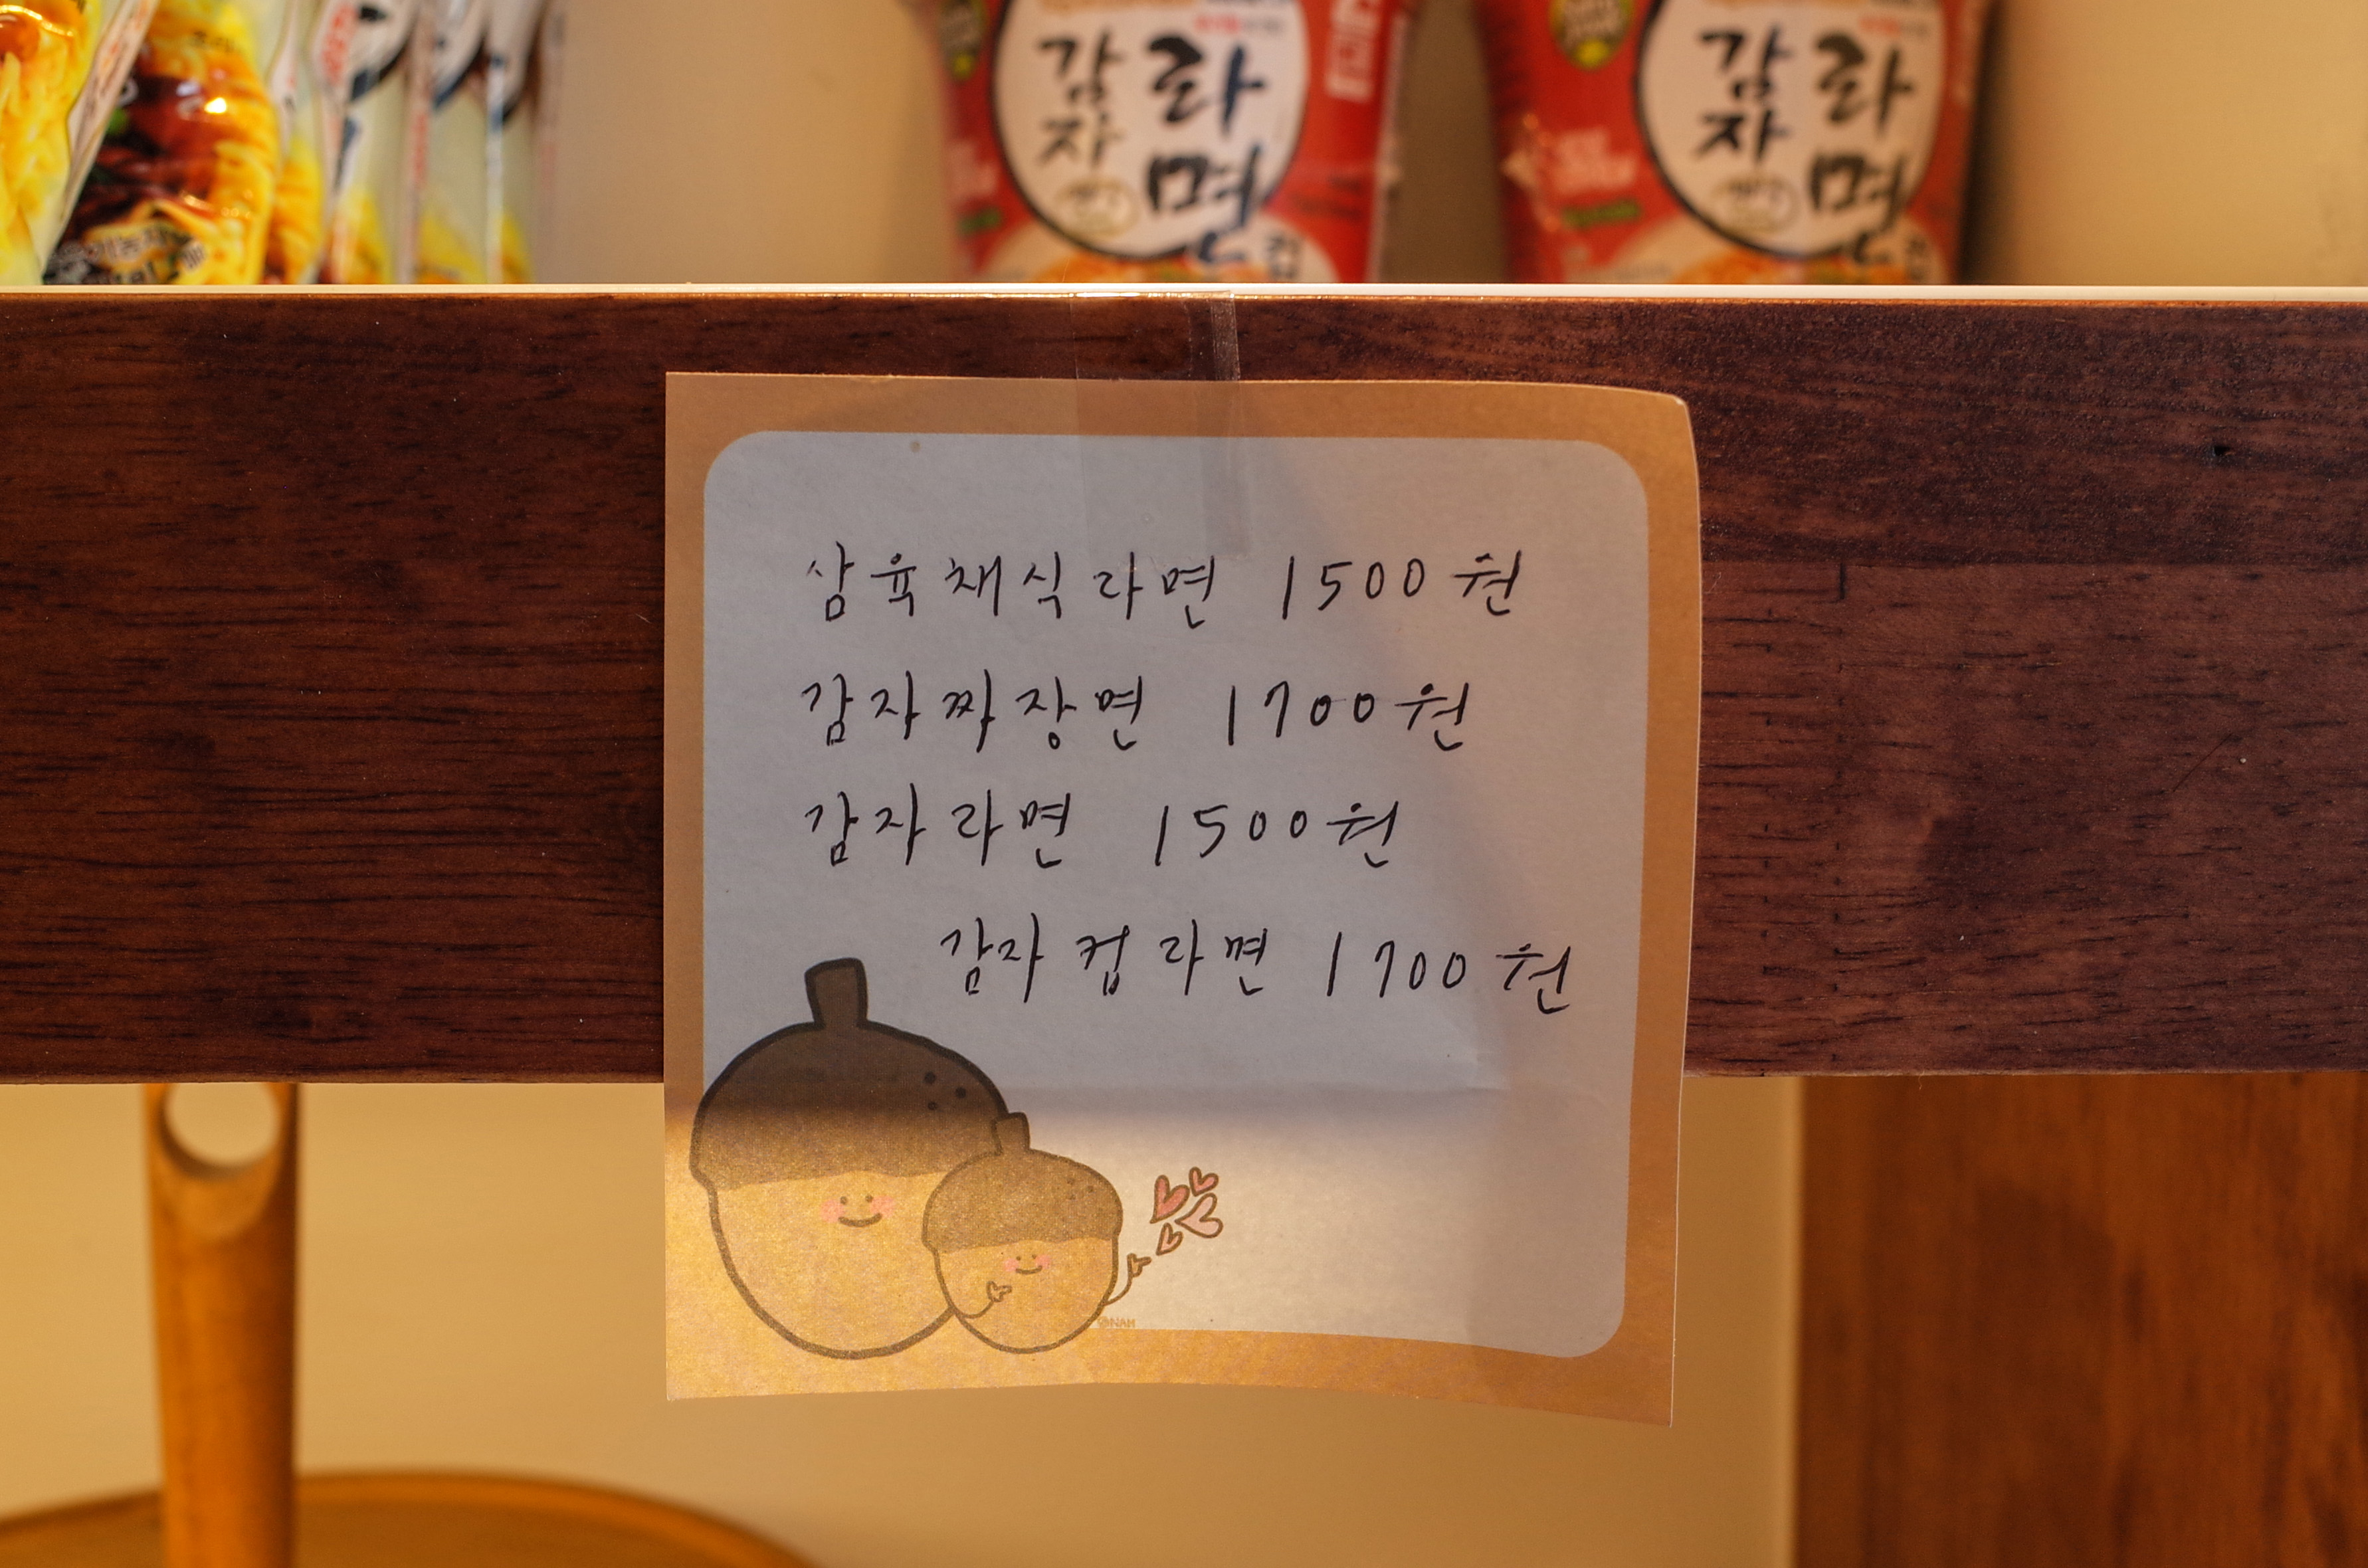 감자
라면
컵
감자
라면
컵
삼육채식라면 1500원
감자짜장면 1700원
감자라면 1500원
감자컵라면 1700원